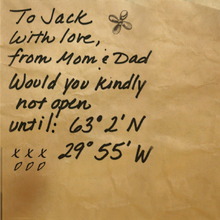 To Jack
with love,
from Mom & Dad
Would you kindly
not open
until: 63° 2' N
x x x 29° 55' W
o o o